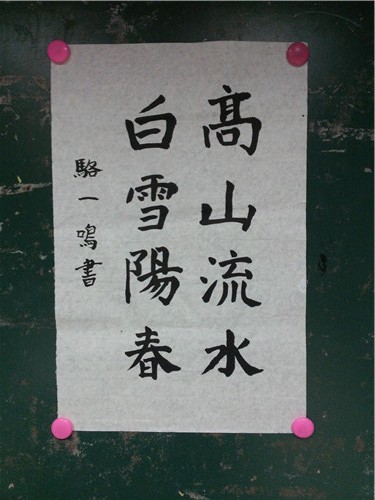 髙山流水
白雪陽春
駱一鳴書